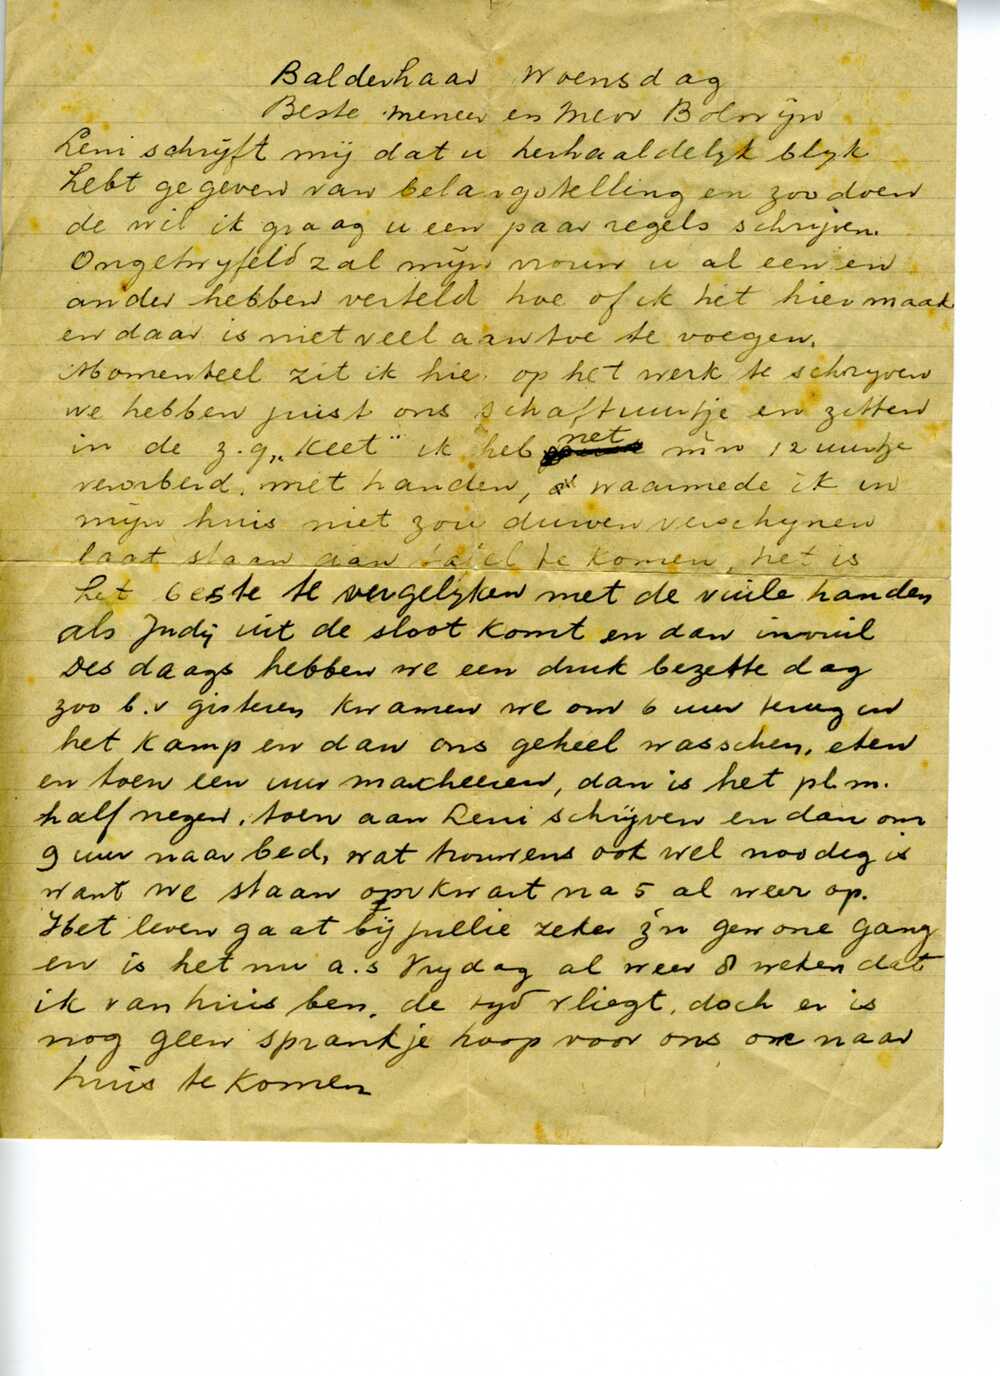 Balderhaar Woensdag
Beste meneer en Mevr Bolwijn
Leni schrijft mij dat u herhaaldelijk blijk
hebt gegeven van belangstelling en zoo doen
de wil ik graag u een paar regels schrijven.
Ongetwijfeld zal mijn vrouw u al een en
ander hebben verteld hoe of ik het hier maak
en daar is niet veel aan toe te voegen.
Momenteel zit ik hier op het werk te schrijven
we hebben juist ons schaftuurtje en zitten
in de z.g. „Keet” ik heb net m'n 12 uurtje
verorberd, met handen, waarmede ik in
mijn huis niet zou durven verschijnen
laat staan aan tafel te komen, het is
het beste te vergelijken met de vuile handen
als Judy uit de sloot komt en dan invuil
Des daags hebben we een druk bezette dag
zoo b.v gisteren kwamen we om 6 uur terug in
het kamp en dan ons geheel wasschen, eten
en toen een uur marcheeren, dan is het pl.m.
half negen, toen aan Leni schrijven en dan om
9 uur naar bed, wat trouwens ook wel noodig is
want we staan om kwart na 5 al weer op.
Het leven gaat bij jullie zeker z'n gewone gang
en is het nu a.s Vrijdag al weer 8 weken dat
ik van huis ben, de tijd vliegt, doch er is
nog geen sprankje hoop voor ons om naar
huis te komen